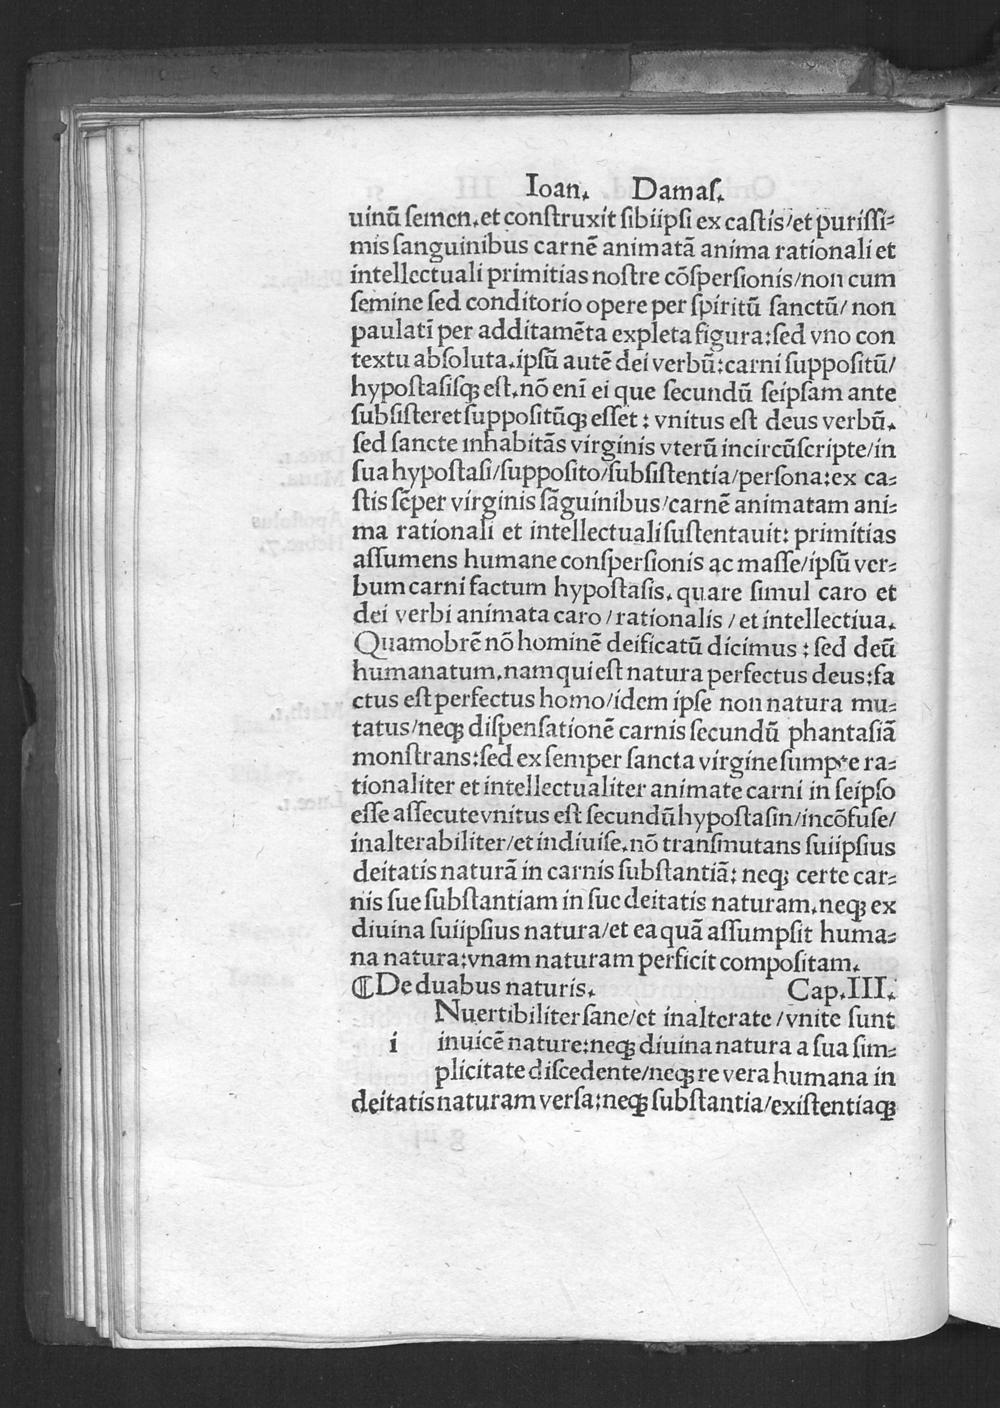 Ioan. Damaſ.
uinū ſemen.et conſtruxit ſibiipſi ex caſtis/et puriſſi⸗
mis ſanguinibus carnē animatā anima rationali et
intellectuali primitias noſtre cōſperſionis/non cum
ſemine ſed conditorio opere per ſpiritū ſanctū/ non
paulatī per additamēta expleta figura:ſed vno con
textu abſoluta.ipſū autē dei verbū:carni ſuppoſitū/
hypoſtaſiſqꝫ eſt.nō enī ei que ſecundū ſeipſam ante
ſubſiſteret ſuppoſitūqꝫ eſſet : vnitus eſt deus verbū.
ſed ſancte inhabitās virginis vterū incircūſcripte/in
ſua hypoſtaſi/ſuppoſito/ſubſiſtentia/perſona:ex ca⸗
ſtis ſēper virginis ſāguinibus/carnē animatam ani⸗
ma rationali et intellectuali ſuſtentauit: primitias
aſſumens humane conſperſionis ac maſſe/ipſū ver⸗
bum carni factum hypoſtaſis. quare ſimul caro et
dei verbi animata caro/rationalis/et intellectiua.
Quamobrē nō hominē deificatū dicimus : ſed deū
humanatum.nam qui eſt natura perfectus deus:fa
ctus eſt perfectus homo/idem ipſe non natura mu⸗
tatus/neqꝫ diſpenſationē carnis ſecundū phantaſiā
monſtrans:ſed ex ſemper ſancta virgine ſumpte ra⸗
tionaliter et intellectualiter animate carni in ſeipſo
eſſe aſſecute vnitus eſt ſecundū hypoſtaſin/incōfuſe/
inalterabiliter/et indiuiſe.nō tranſmutans ſuiipſius
deitatis naturā in carnis ſubſtantiā: neqꝫ certe car⸗
nis ſue ſubſtantiam in ſue deitatis naturam.neqꝫ ex
diuina ſuiipſius natura/et ea quā aſſumpſit huma⸗
na natura:vnam naturam perficit compoſitam.
¶De duabus naturis. Cap.III.
Nuertibiliter ſane/et inalterate/vnite ſunt
i inuicē nature:neqꝫ diuina natura a ſua ſim⸗
plicitate diſcedente/neqꝫ re vera humana in
deitatis naturam verſa:neqꝫ ſubſtantia/exiſtentiaqꝫ